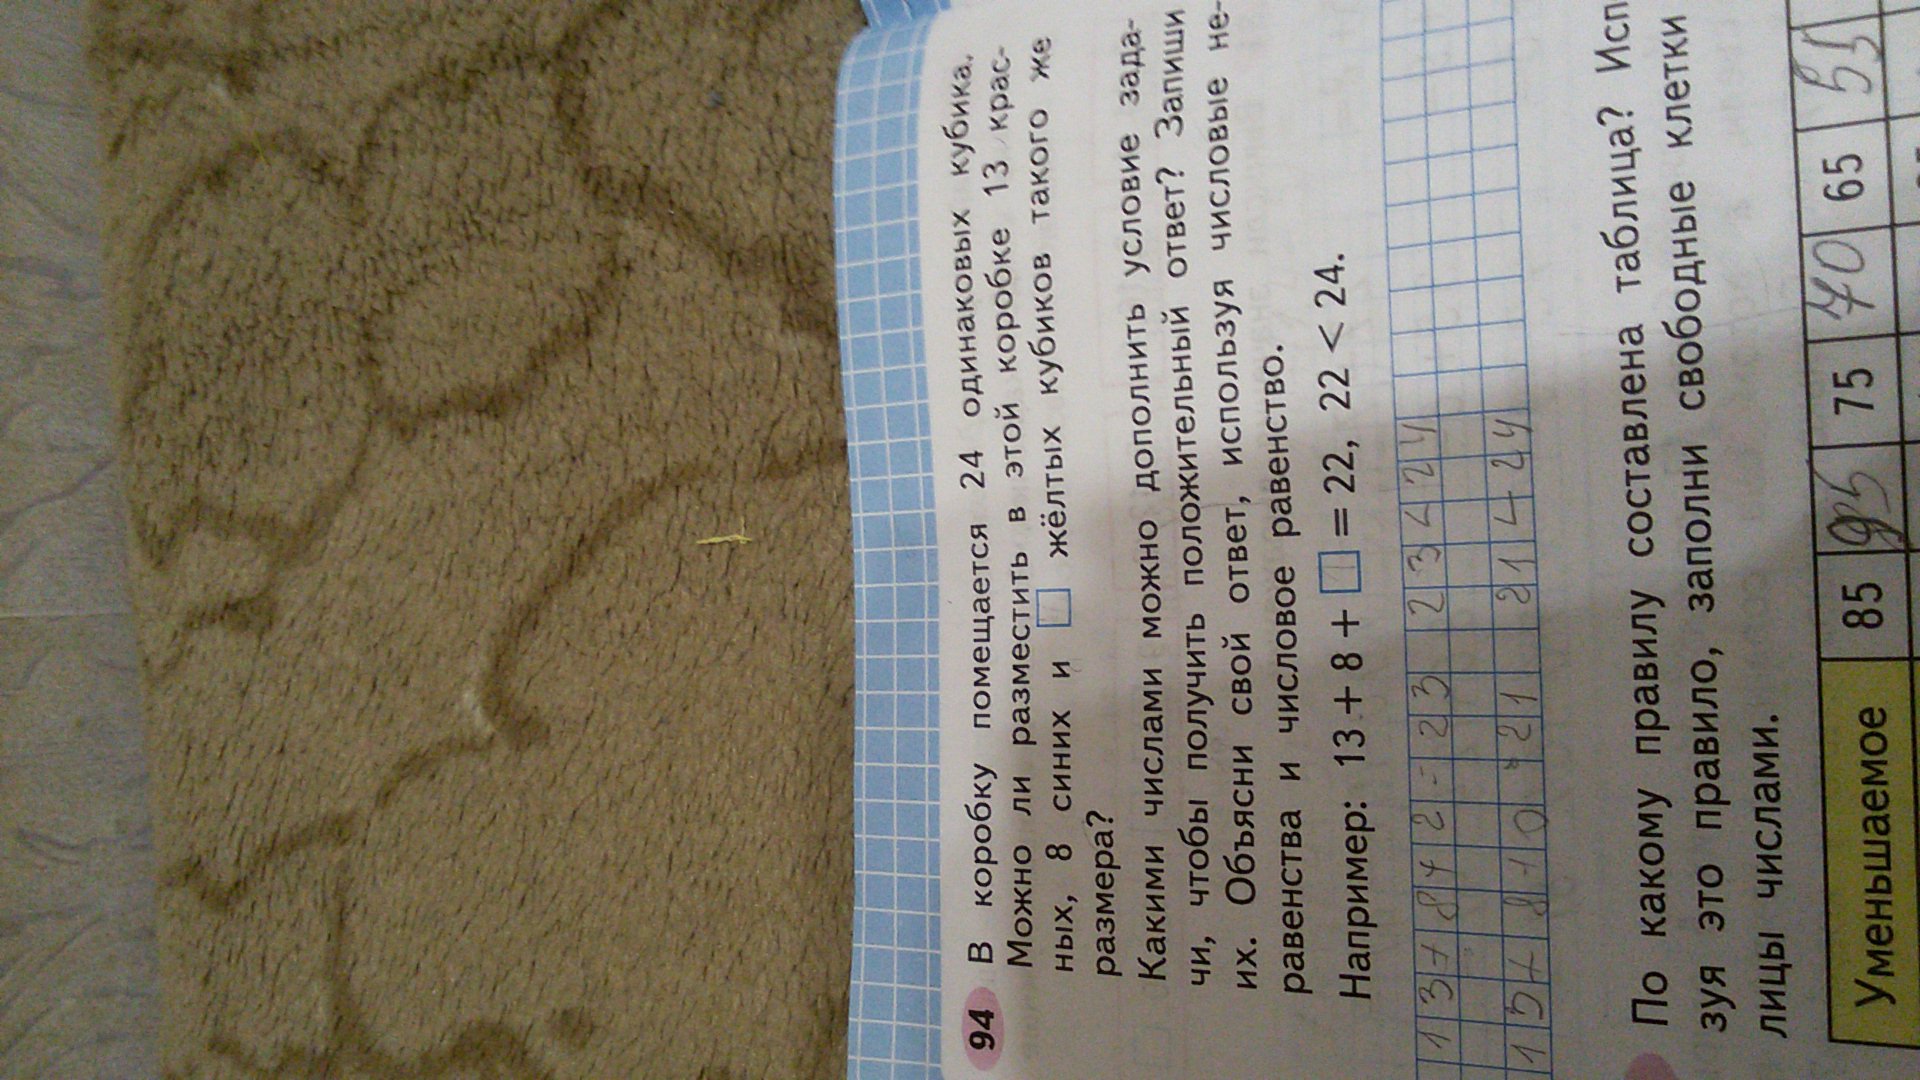 94 В коробку помещается 24 одинаковых кубика.
Можно ли разместить в этой коробке 13 крас-
ных, 8 синих и □ жёлтых кубиков такого же
размера?
Какими числами можно дополнить условие зада-
чи, чтобы получить положительный ответ? Запиши
их. Объясни свой ответ, используя числовые не-
равенства и числовое равенство.
Например: 13 + 8 + 1 = 22, 22 < 24.
13+8+2=23 23<24
13+8+0=21 21<24
По какому правилу составлена таблица? Исп
зуя это правило, заполни свободные клетки
лицы числами.
Уменьшаемое 85 95 75 70 65 55